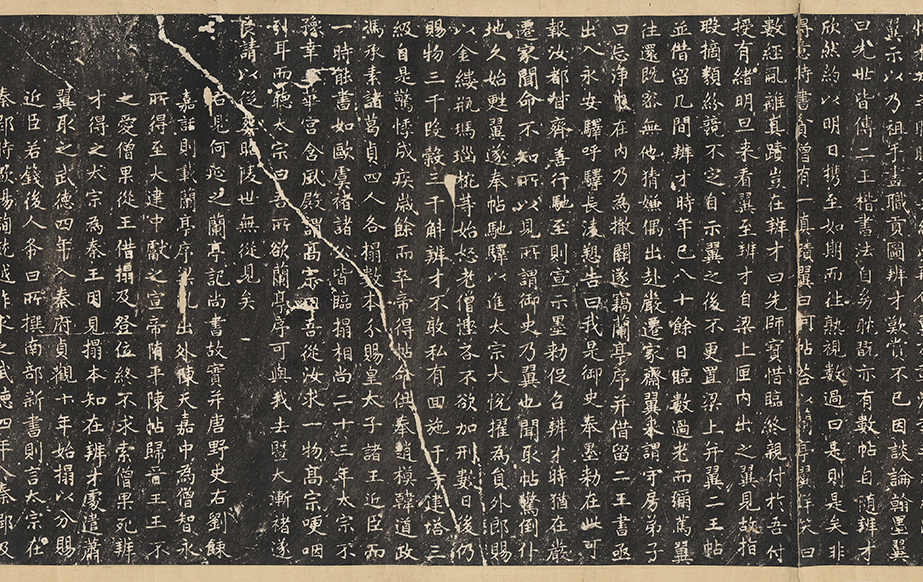 翼示以乃祖手畫職貢圖辨才歎賞不已因談論翰墨翼
曰先世皆傳二王楷書法自幼耽翫亦有數帖自隨辨才
欣然約以明日攜至如期而往熟視數過曰是則是矣非
得意時書貧僧有一真蹟翼曰何帖答以蘭亭翼佯笑曰
數經亂離真蹟豈在辨才曰先師寶惜臨終親付於吾付
授有緒明旦來看翼至辨才自梁上匣內出之翼見故指
瑕摘纇紛競不定自示翼之後不更置梁上并翼二王帖
並借留几間辨才時年已八十餘日臨數過老而彌篤翼
往還既密無他猜嫌偶出赴嚴遷家齋翼來謂守房弟子
曰忘淨巾在內乃為撤關遂竊蘭亭序并借留二王書亟
出入永安驛呼驛長後愬告曰我是御史奉墨勑在此可
報汝都督齊善行馳至則宣示墨勑促召辨才時猶在嚴
遷家聞命不知所以見所謂御史乃翼也聞取帖驚倒仆
地久始甦翼遂奉帖馳驛以進太宗大悅擢為員外郎賜
以金縷瓶瑪瑙椀等始怒老僧慳吝不欲加刑數日後仍
賜物三千段穀三千斛辨才不敢私有回施于寺建塔三
級自是驚悸成疾歲餘而卒帝得帖命供奉趙模韓道政
馮承素諸葛貞四人各搨數本分賜皇太子諸王近臣而
一時能書如歐虞褚諸公皆臨搨相尚二十三年太宗不
豫幸玉華宮含風殿謂高宗曰吾從汝求一物高宗哽咽
引耳而聽太宗曰吾所欲蘭亭序可與我去暨大漸褚遂
良請以從葬昭陵世無從見矣
右見何延之蘭亭記尚書故實并唐野史右劉餗
嘉話則載蘭亭序梁亂出外陳天嘉中為僧智永
所得至大建中獻之宣帝隋平陳帖歸晉王王不
之愛僧果從王借搨及登位終不求索僧果死辨
才得之太宗為秦王因見搨本知在辨才處遣蕭
翼取之武德四年入秦府貞觀十年始搨以分賜
近臣若錢後人希白所撰南部新書則言太宗在
秦邸時歐陽詢詭越州求之武德四年入秦邸及